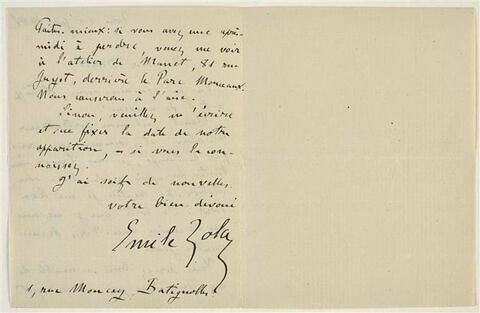 Faites mieux: si vous avez une après-
midi à perdre, venez me voir
à l'atelier de Manet, 81 rue
Guyot, derrière le Parc Monceaux.
Nous causerons à l'aise.
Sinon, veuillez m'écrire
et me fixer la date de notre
apparition, – si vous la con-
naissez.
J'ai soif de nouvelles.
Votre bien dévoué
Emile Zola
1, rue Moncey. Batignolles.